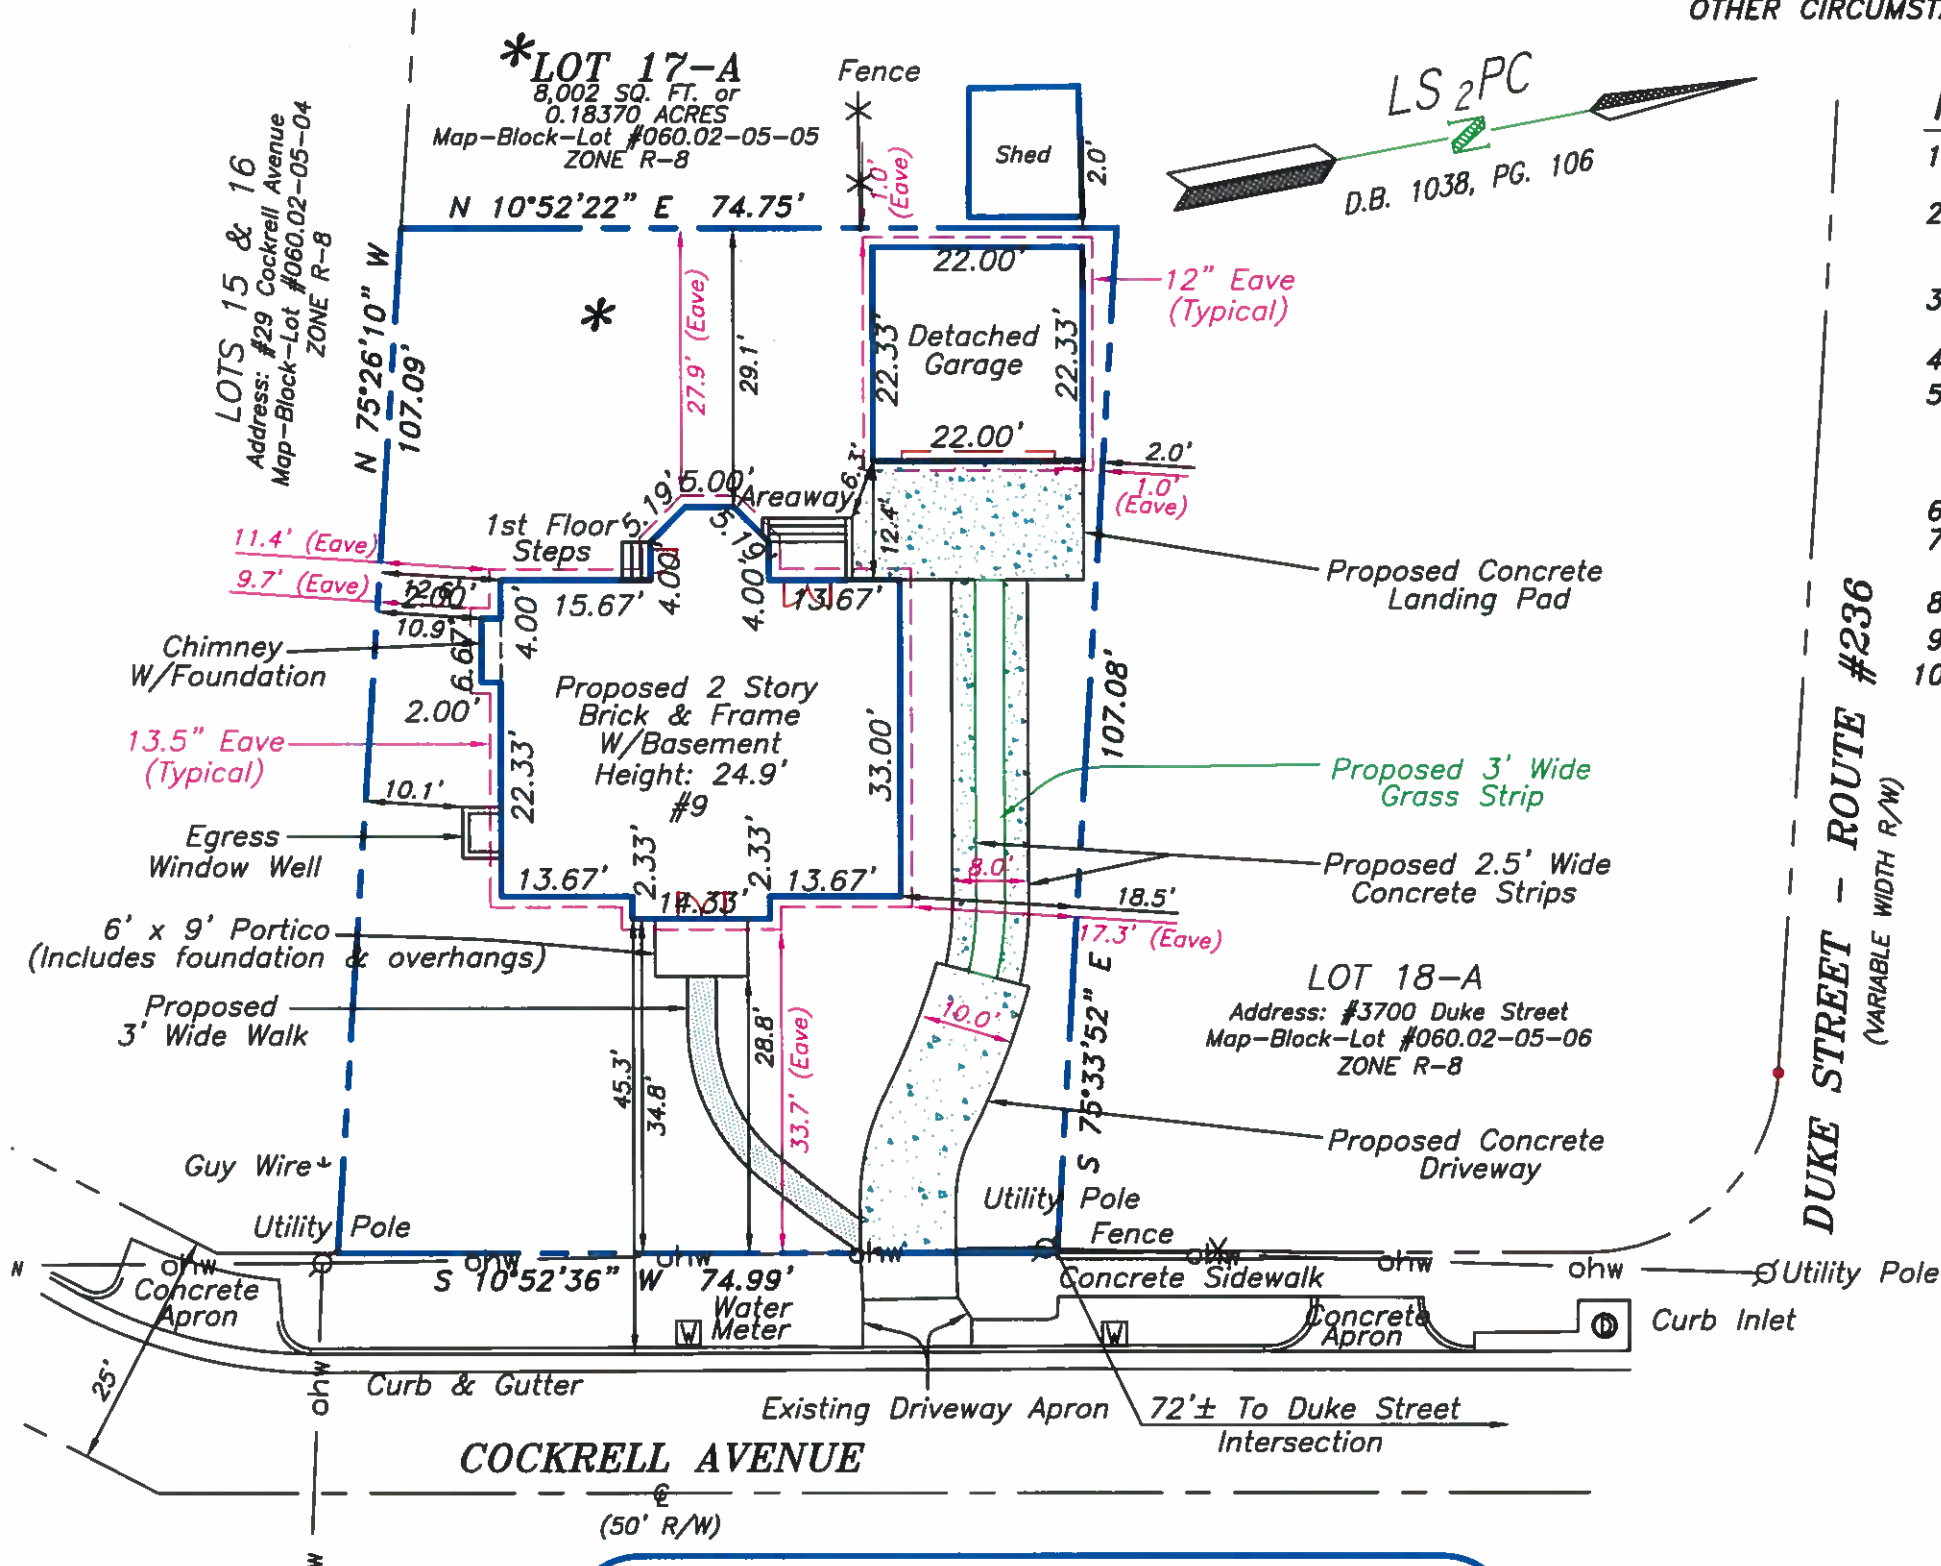 OTHER CIRCUMST
*LOT 17-A
8,002 SQ. FT. or
0.18370 ACRES
Map-Block-Lot #060.02-05-05
ZONE R-8
Fence
Shed
2.0'
1.0'
(Eave)
LS2PC
N
D.B. 1038, PG. 106
1
2
3
4
5
6
7
8
9
10
LOTS 15 & 16
Address: #29 Cockrell Avenue
Map-Block-Lot #060.02-05-04
ZONE R-8
N 10°52'22" E 74.75'
N 75°26'10" W
107.09'
*
27.9' (Eave)
29.1'
22.00'
22.33'
Detached
Garage
22.33'
22.00'
12" Eave
(Typical)
2.0'
1.0'
(Eave)
6.3'
12.4'
5.00'
5.19'
5.19'
Areaway
1st Floor
Steps
11.4' (Eave)
9.7' (Eave)
12.6'
2.00'
10.9'
15.67'
4.00'
4.00'
13.67'
4.00'
6.67'
2.00'
Chimney
W/Foundation
13.5" Eave
(Typical)
10.1'
22.33'
Egress
Window Well
Proposed 2 Story
Brick & Frame
W/Basement
Height: 24.9'
#9
33.00'
13.67'
2.33'
14.33'
2.33'
13.67'
Proposed Concrete
Landing Pad
107.08'
Proposed 3' Wide
Grass Strip
Proposed 2.5' Wide
Concrete Strips
8.0'
18.5'
17.3' (Eave)
6' x 9' Portico
(Includes foundation & overhangs)
Proposed
3' Wide Walk
10.0'
45.3'
34.8'
28.8'
33.7' (Eave)
S 75°33'52" E
LOT 18-A
Address: #3700 Duke Street
Map-Block-Lot #060.02-05-06
ZONE R-8
Proposed Concrete
Driveway
DUKE STREET - ROUTE #236
(VARIABLE WIDTH R/W)
Guy Wire
Utility Pole
Utility Pole
Fence
ohw
ohw
ohw
ohw
ohw
ohw
Utility Pole
S 10°52'36" W 74.99'
Concrete
Apron
Water
Meter
W
Concrete Sidewalk
W
Concrete
Apron
Curb Inlet
25'
ohw
Curb & Gutter
Existing Driveway Apron
72'± To Duke Street
Intersection
COCKRELL AVENUE
(50' R/W)